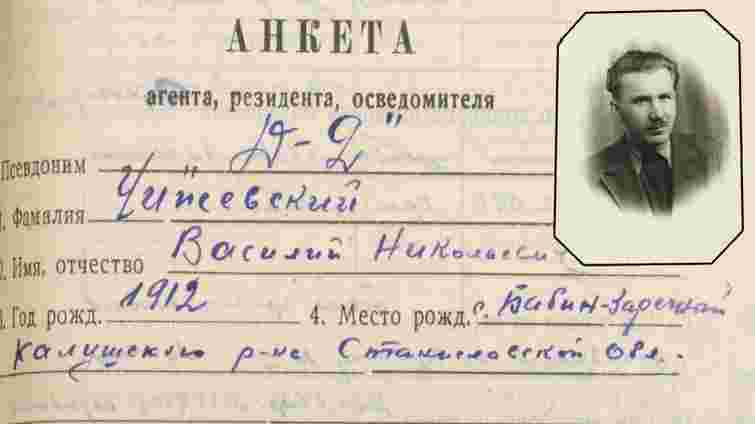 АНКЕТА
агента, резидента, осведомителя
Псевдоним „Д-2"
1. Фамилия Чижевский
2. Имя, отчество Василий Николаевич
3. Год рожд. 1912 4. Место рожд. с. Бабин-Зареч­ный
Калушского р-на Станиславской обл.